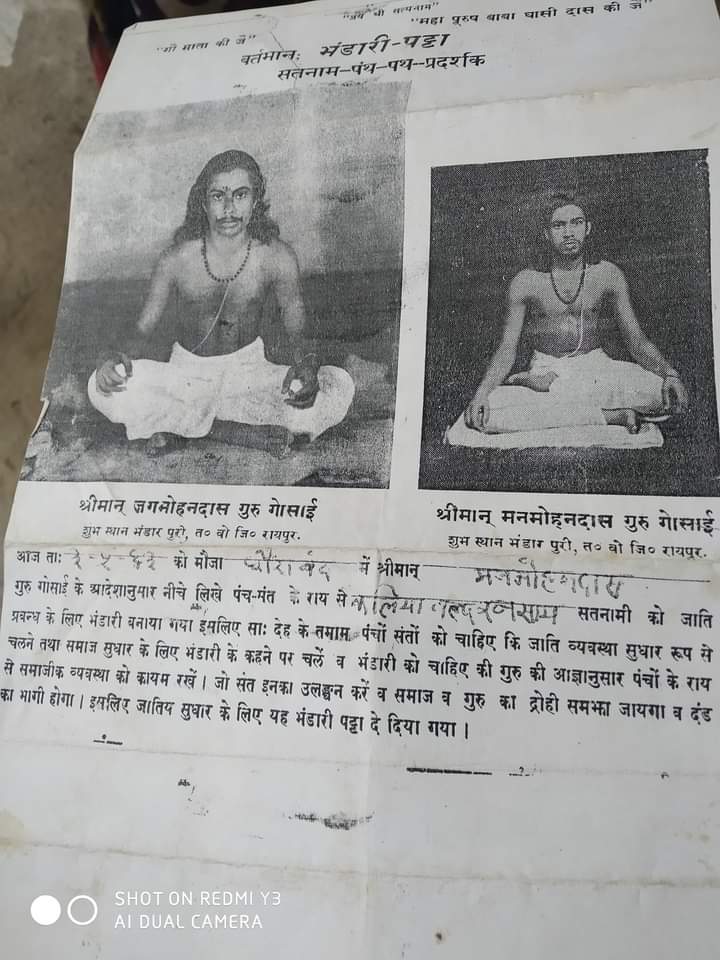 "गौ माता की जै" "जय श्री सत्यनाम" "महा पुरुष बाबा घासी दास की जै"
वर्तमान: भंडारी-पट्टा
सतनाम-पंथ-पथ-प्रदर्शक
श्रीमान् जगमोहनदास गुरु गोसाई
शुभ स्थान भंडार पुरी, त० वो जि० रायपुर.
श्रीमान् मनमोहनदास गुरु गोसाई
शुभ स्थान भंडार पुरी, त० वो जि० रायपुर.
आज ताः को मौजा में श्रीमान्
गुरु गोसाई के आदेशानुसार नीचे लिखे पंच-संत के राय से सतनामी को जाति
प्रबन्ध के लिए भंडारी बनाया गया इसलिए साः देह के तमाम पंचों संतों को चाहिए कि जाति व्यवस्था सुधार रूप से
चलने तथा समाज सुधार के लिए भंडारी के कहने पर चलें व भंडारी को चाहिए की गुरु की आज्ञानुसार पंचों के राय
से समाजीक व्यवस्था को कायम रखें। जो संत इनका उलङ्घन करें व समाज व गुरु का द्रोही समझा जायगा व दंड
का भागी होगा। इसलिए जातिय सुधार के लिए यह भंडारी पट्टा दे दिया गया।
SHOT ON REDMI Y3
AI DUAL CAMERA